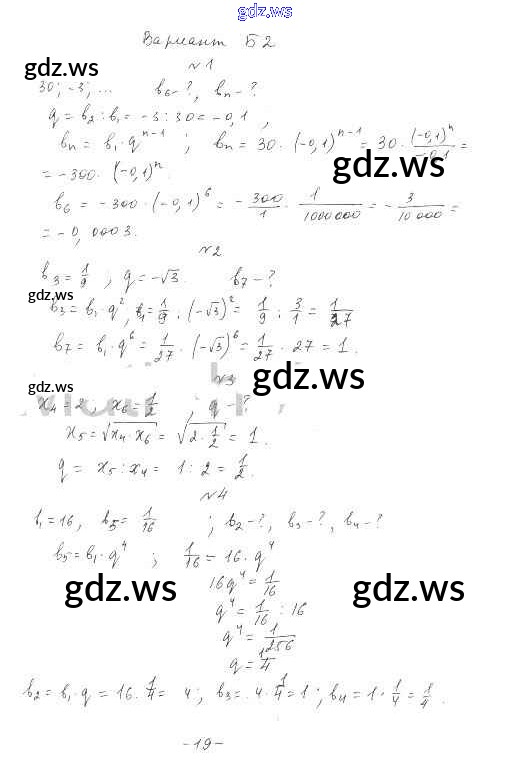 gdz.ws
Вариант Б2
gdz.ws
№1
30; -3; ... b₆-?, bₙ-?
q = b₂ : b₁ = -3 : 30 = -0,1 ,
bₙ = b₁·qⁿ⁻¹ ; bₙ = 30·(-0,1)ⁿ⁻¹ = 30·(-0,1)ⁿ/-0,1 =
gdz.ws
= -300·(-0,1)ⁿ.
b₆ = -300·(-0,1)⁶ = -300/1 · 1/1000000 = -3/10000 =
= -0,0003.
№2
b₃ = 1/9 ; q = -√3. b₇-?
gdz.ws
b₃ = b₁·q², b₁ = 1/9 : (-√3)² = 1/9 : 3/1 = 1/27
b₇ = b₁·q⁶ = 1/27·(-√3)⁶ = 1/27·27 = 1.
gdz.ws
№3
gdz.ws
x₄ = 2, x₆ = 1/2 , q-?
x₅ = √x₄·x₆ = √2·1/2 = 1.
q = x₅ : x₄ = 1 : 2 = 1/2.
№4
b₁ = 16, b₅ = 1/16 ; b₂-?, b₃-?, b₄-?
b₅ = b₁·q⁴ ; 1/16 = 16·q⁴
16q⁴ = 1/16
gdz.ws gdz.ws
q⁴ = 1/16 : 16
q⁴ = 1/256
q = 1/4
b₂ = b₁·q = 16·1/4 = 4; b₃ = 4·1/4 = 1; b₄ = 1·1/4 = 1/4.
-19-